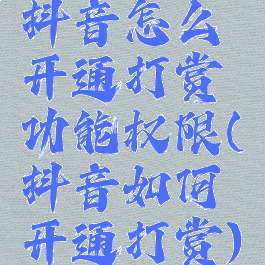 抖音怎么
开通打赏
功能权限(
抖音如何
开通打赏)